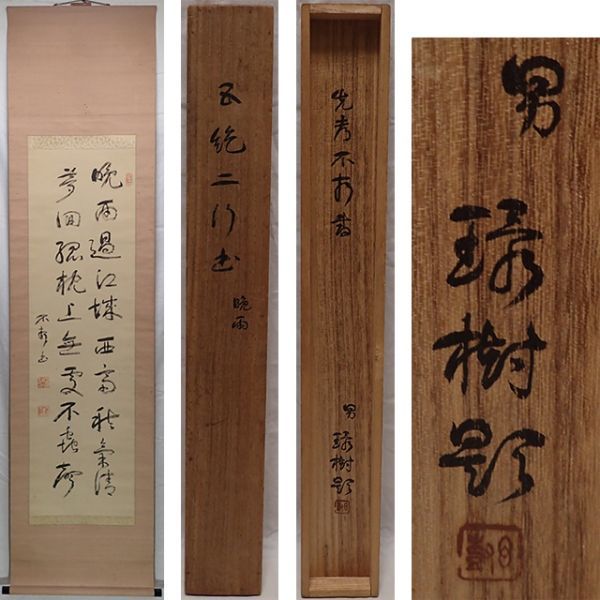 晩雨過江城 西窓秋氣清
夢回孤枕上 無處不蟲聲
不折書
五絶二行書
晩雨
先考不折書
男
琢樹題
男
琢樹題